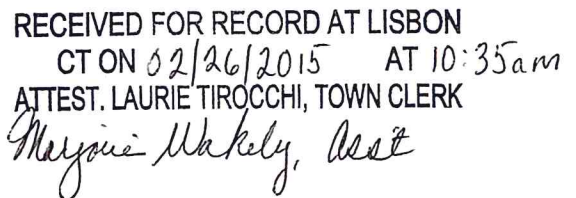 RECEIVED FOR RECORD AT LISBON
CT ON 02/26/2015 AT 10:35am
ATTEST. LAURIE TIROCCHI, TOWN CLERK
Marjorie Wakely, Asst